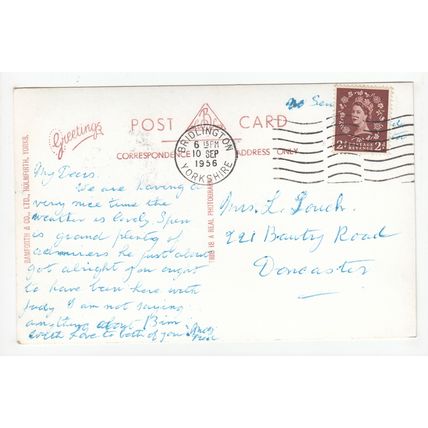 Greetings
POST CARD
CORRESPONDENCE
ADDRESS ONLY
BRIDLINGTON
6 PM
10 SEP
1956
YORKSHIRE
2D POSTAGE REVENUE 2D
BAMFORTH & CO., LTD., HOLMFIRTH, YORKS.
THIS IS A REAL PHOTOGRAPH
My Dears.
We are having a
very nice time the
weather is lovely
is grand plenty of
admirers he just about
got alright you ought
to have been here with
Judy I am not saying
anything about Bim
love to both of you
Mrs. L. Gouch.
221 Bawtry Road
Doncaster